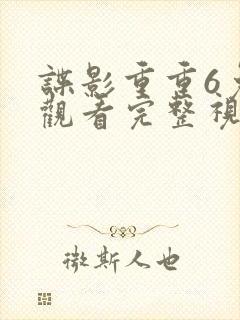 諜影重重6免
觀看完整視
微斯人也